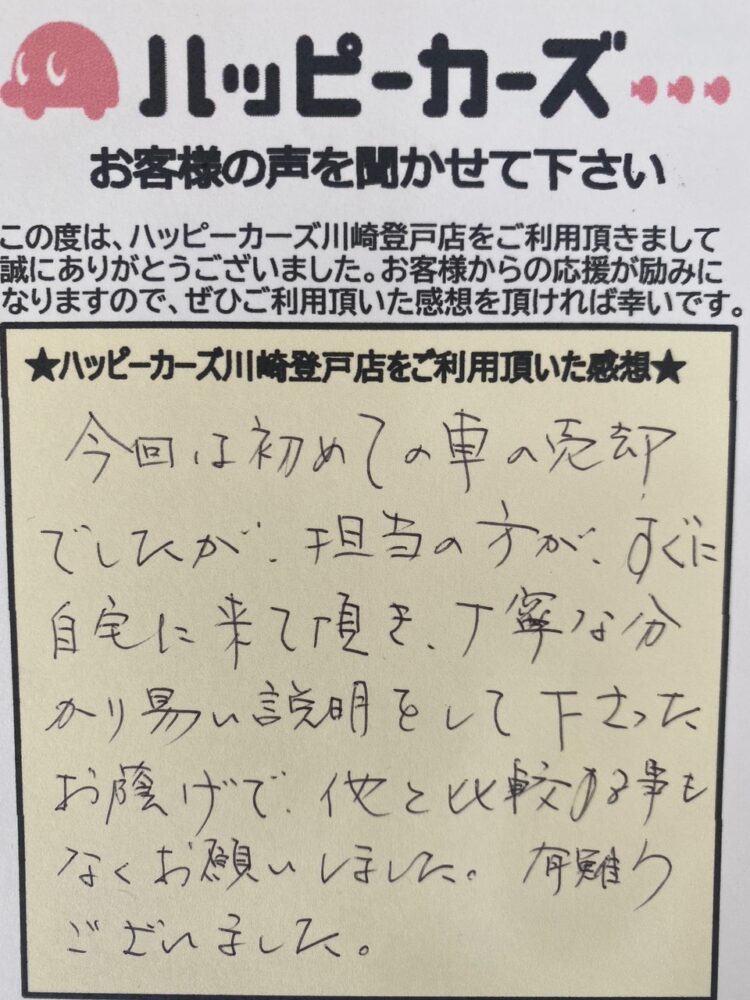 ハッピーカーズ
お客様の声を聞かせて下さい
この度は、ハッピーカーズ川崎登戸店をご利用頂きまして
誠にありがとうございました。お客様からの応援が励みに
なりますので、ぜひご利用頂いた感想を頂ければ幸いです。
★ハッピーカーズ川崎登戸店をご利用頂いた感想★
今回は初めての車の売却
でしたが、担当の方が、すぐに
自宅に来て頂き、丁寧な分
かり易い説明をして下さった
お蔭げで、他と比較する事も
なくお願いしました。有難う
ございました。